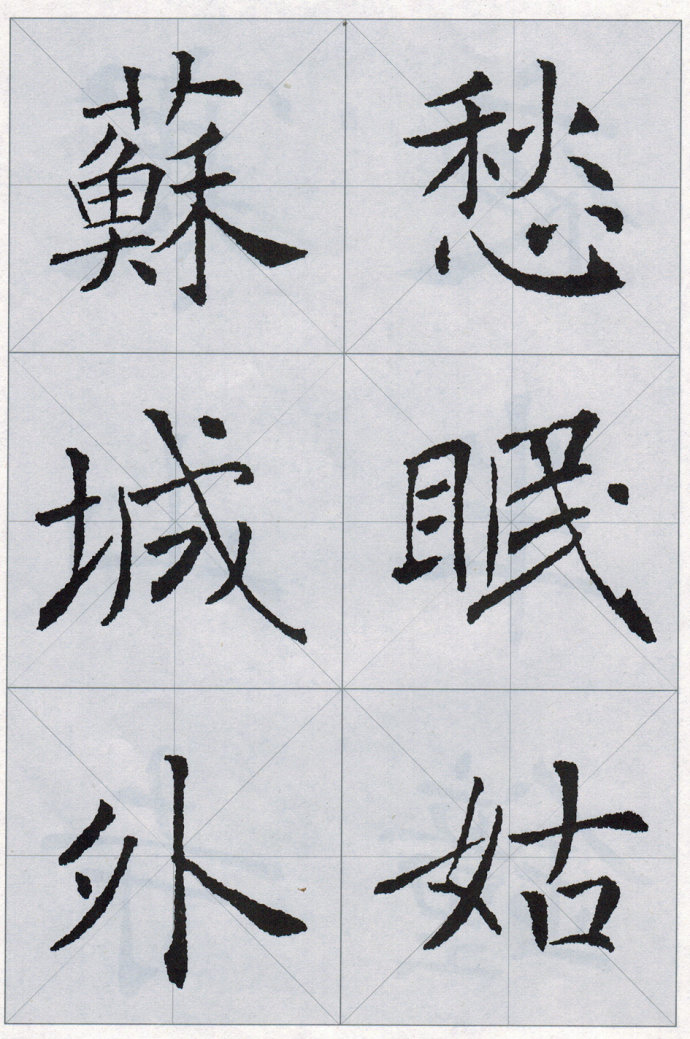 愁眠姑
蘇城外